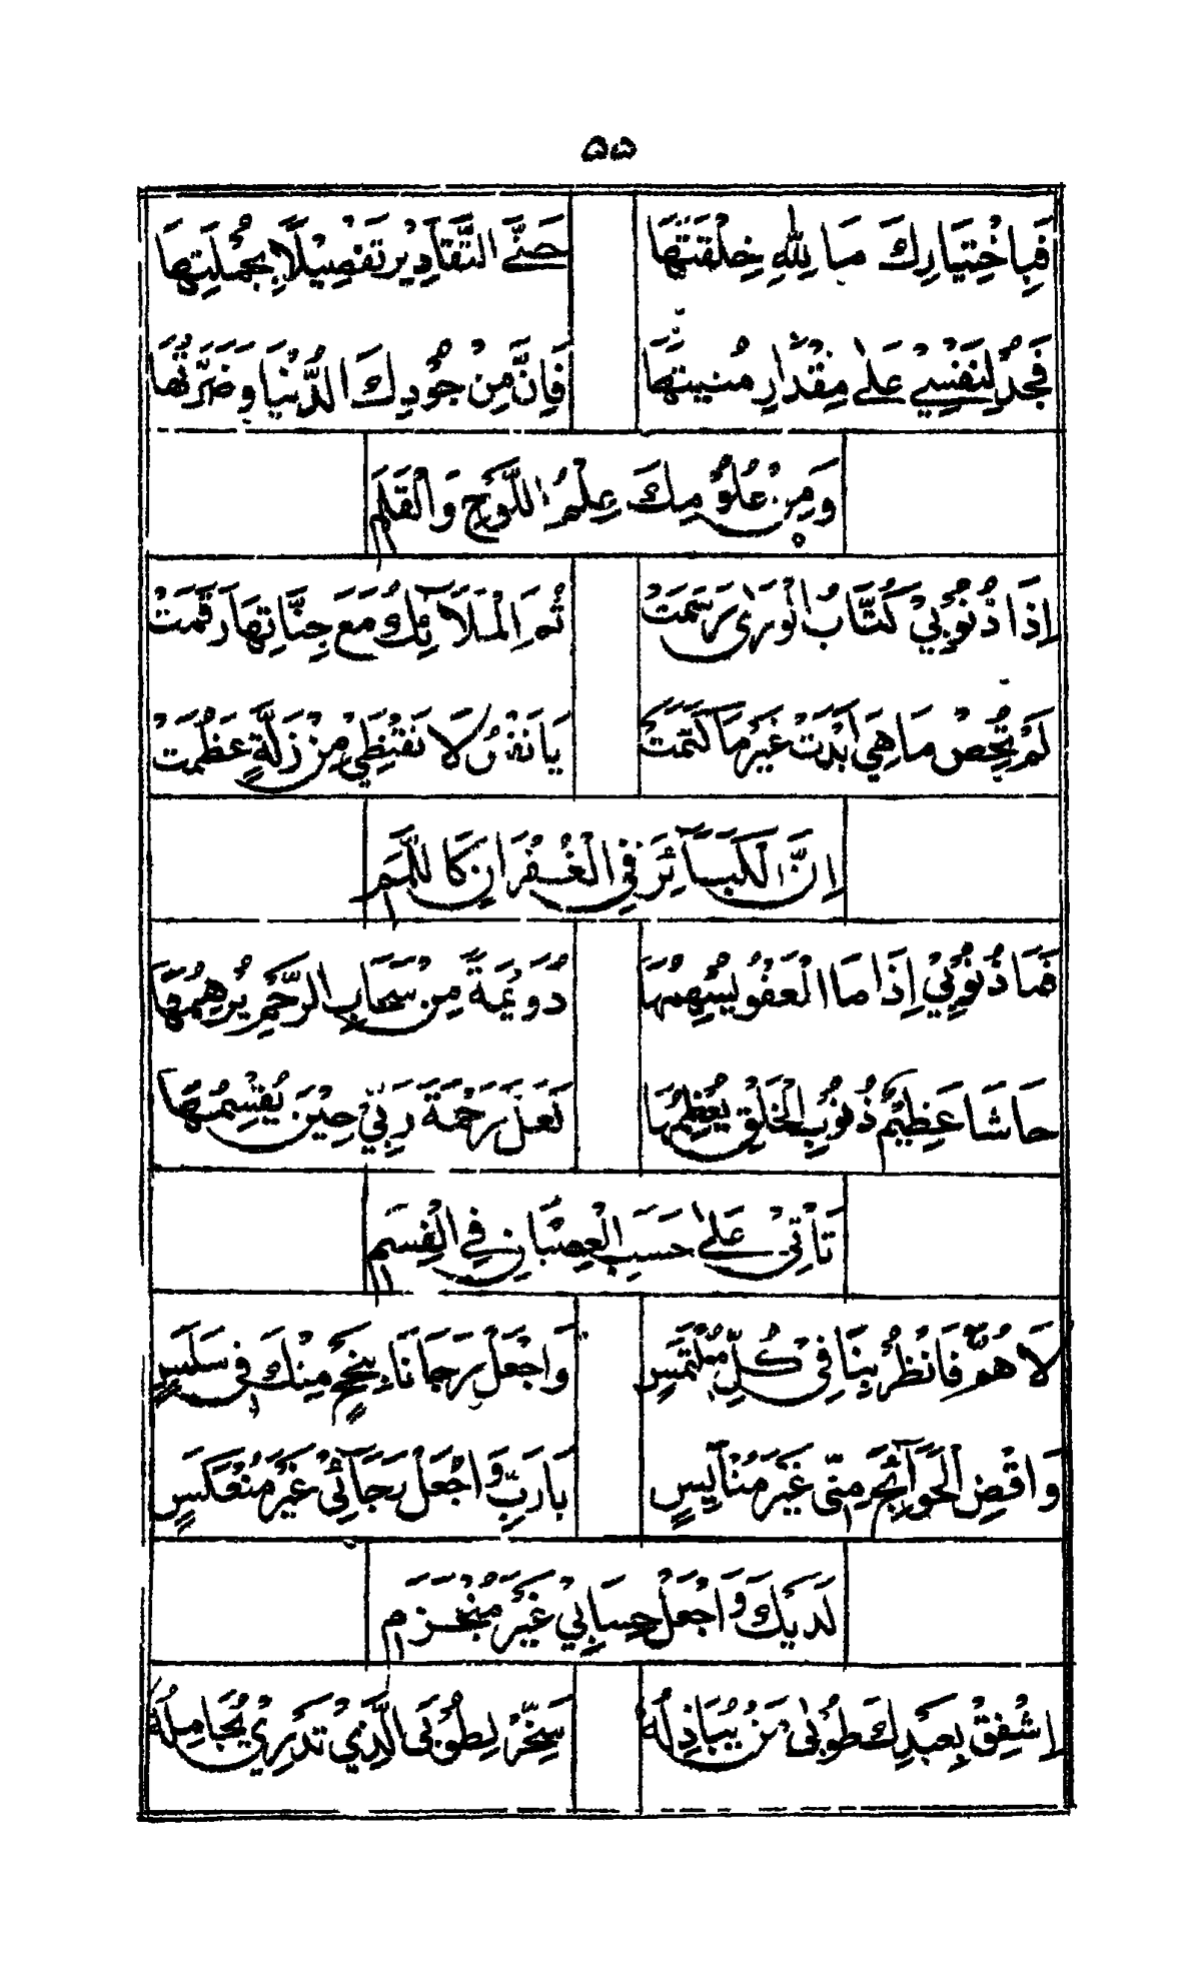 ٥٥
فَبِاخْتِيَارِكَ مَا لِلّٰهِ خِلْقَتُهَا حَتَّى التَّقَادِيرِ تَفْصِيْلًا بِجُمْلَتِهَا
فَجُدْ لِنَفْسِيْ عَلٰى مِقْدَارِ مُنْيَتِهَا فَاِنَّ مِنْ جُوْدِكَ الدُّنْيَا وَضَرَّتَهَا
وَمِنْ عُلُوْمِكَ عِلْمُ اللَّوْحِ وَالْقَلَمِ
اِذَا ذُنُوْبِيْ كُتَّابُ الْوَرٰى رَسَمَتْ ثُمَّ الْمَلَآئِكُ مَعَ جِنَّاتِهَا رَقَمَتْ
لَمْ تُحْصِ مَا هِيَ اَبْدَتْ غَيْرَ مَا كَتَمَتْ يَا نَفْسُ لَا تَقْنَطِيْ مِنْ زَلَّةٍ عَظُمَتْ
اِنَّ الْكَبَآئِرَ فِي الْغُفْرَانِ كَاللَّمَمِ
فَمَا ذُنُوْبِيْ اِذَا مَا الْعَفْوُ يُسْهِمُهَا دُوَيْمَةٌ مِنْ سَحَابِ الرُّحْمِ يُرْهِمُهَا
حَاشَا عَظِيْمُ ذُنُوْبِ الْخَلْقِ يُعْظِمُهَا لَعَلَّ رَحْمَةَ رَبِّيْ حِيْنَ يُقْسِمُهَا
تَأْتِيْ عَلٰى حَسَبِ الْعِصْيَانِ فِي الْقِسَمِ
لَاهُمَّ فَانْظُرْ بِنَا فِيْ كُلِّ مُلْتَمَسٍ وَاجْعَلْ رَجَانَا بِنُجْحٍ مِنْكَ فِيْ سَلَسٍ
وَاقْضِ الْحَوَآئِجَ مِنِّيْ غَيْرَ مُنْاَيِسٍ يَا رَبِّ وَاجْعَلْ رَجَآئِيْ غَيْرَ مُنْعَكِسٍ
لَدَيْكَ وَاجْعَلْ حِسَابِيْ غَيْرَ مُنْخَرِمِ
اِشْفِقْ بِعَبْدِكَ طُوْبٰى مَنْ يُبَاذِلُهُ سَخِّرْ لِطُوْبَى الَّذِيْ تَدْرِيْ يُجَامِلُهُ